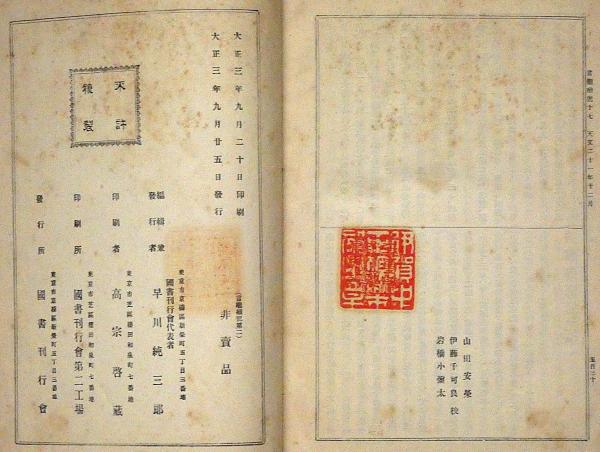 言繼卿記十七 天文二十一年十二月
五百三十
山田安榮
伊藤千可良 校
岩橋小彌太
大正三年九月二十日印刷
大正三年九月廿五日發行
不許
複製
(言繼卿記第二)
非賣品
東京市京橋區新榮町五丁目三番地
國書刊行會代表者
編輯兼
發行者
早川純三郎
東京市芝區櫻田和泉町七番地
印刷者 高宗啓藏
東京市芝區櫻田和泉町七番地
印刷所 國書刊行會第二工場
東京市京橋區新榮町五丁目三番地
發行所 國書刊行會